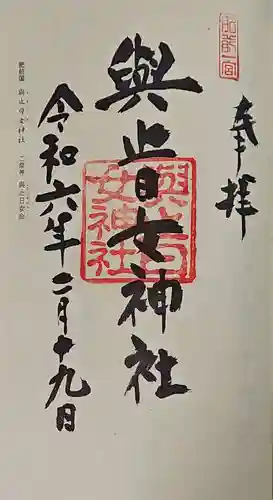 肥前一宮
奉拝
與止日女神社
與止日
女神社
令和六年二月十九日
肥前國 與止日女神社 ご祭神 與止日女命